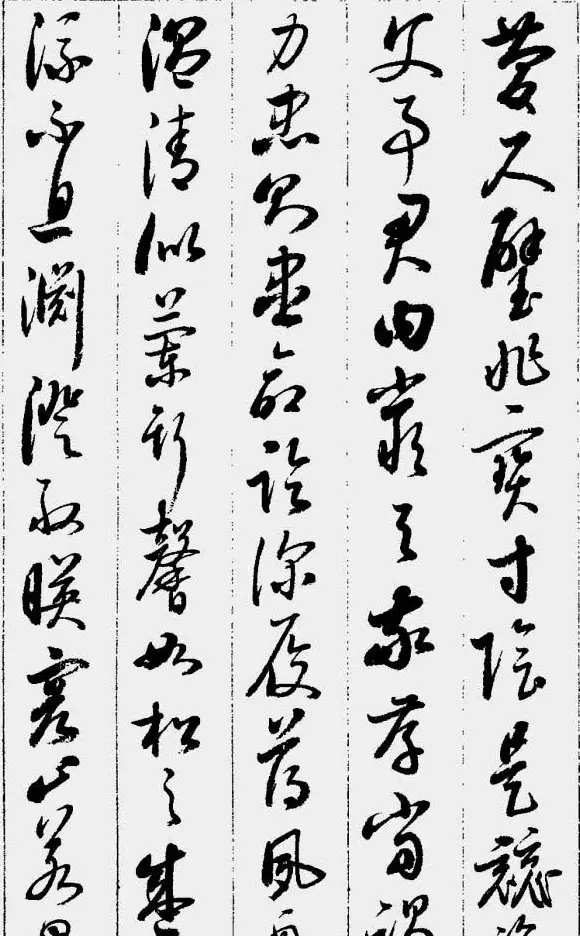 慶尺璧非寶寸陰是競
父事君曰嚴與敬孝當
力忠則盡命臨深履薄夙
溫清似蘭斯馨如松之盛
流不息淵澄取映容止若